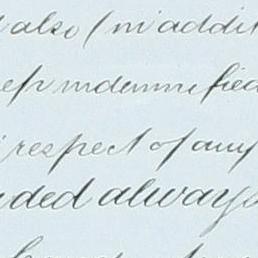 also (in addit
ep indemnified
respect of any
ded always